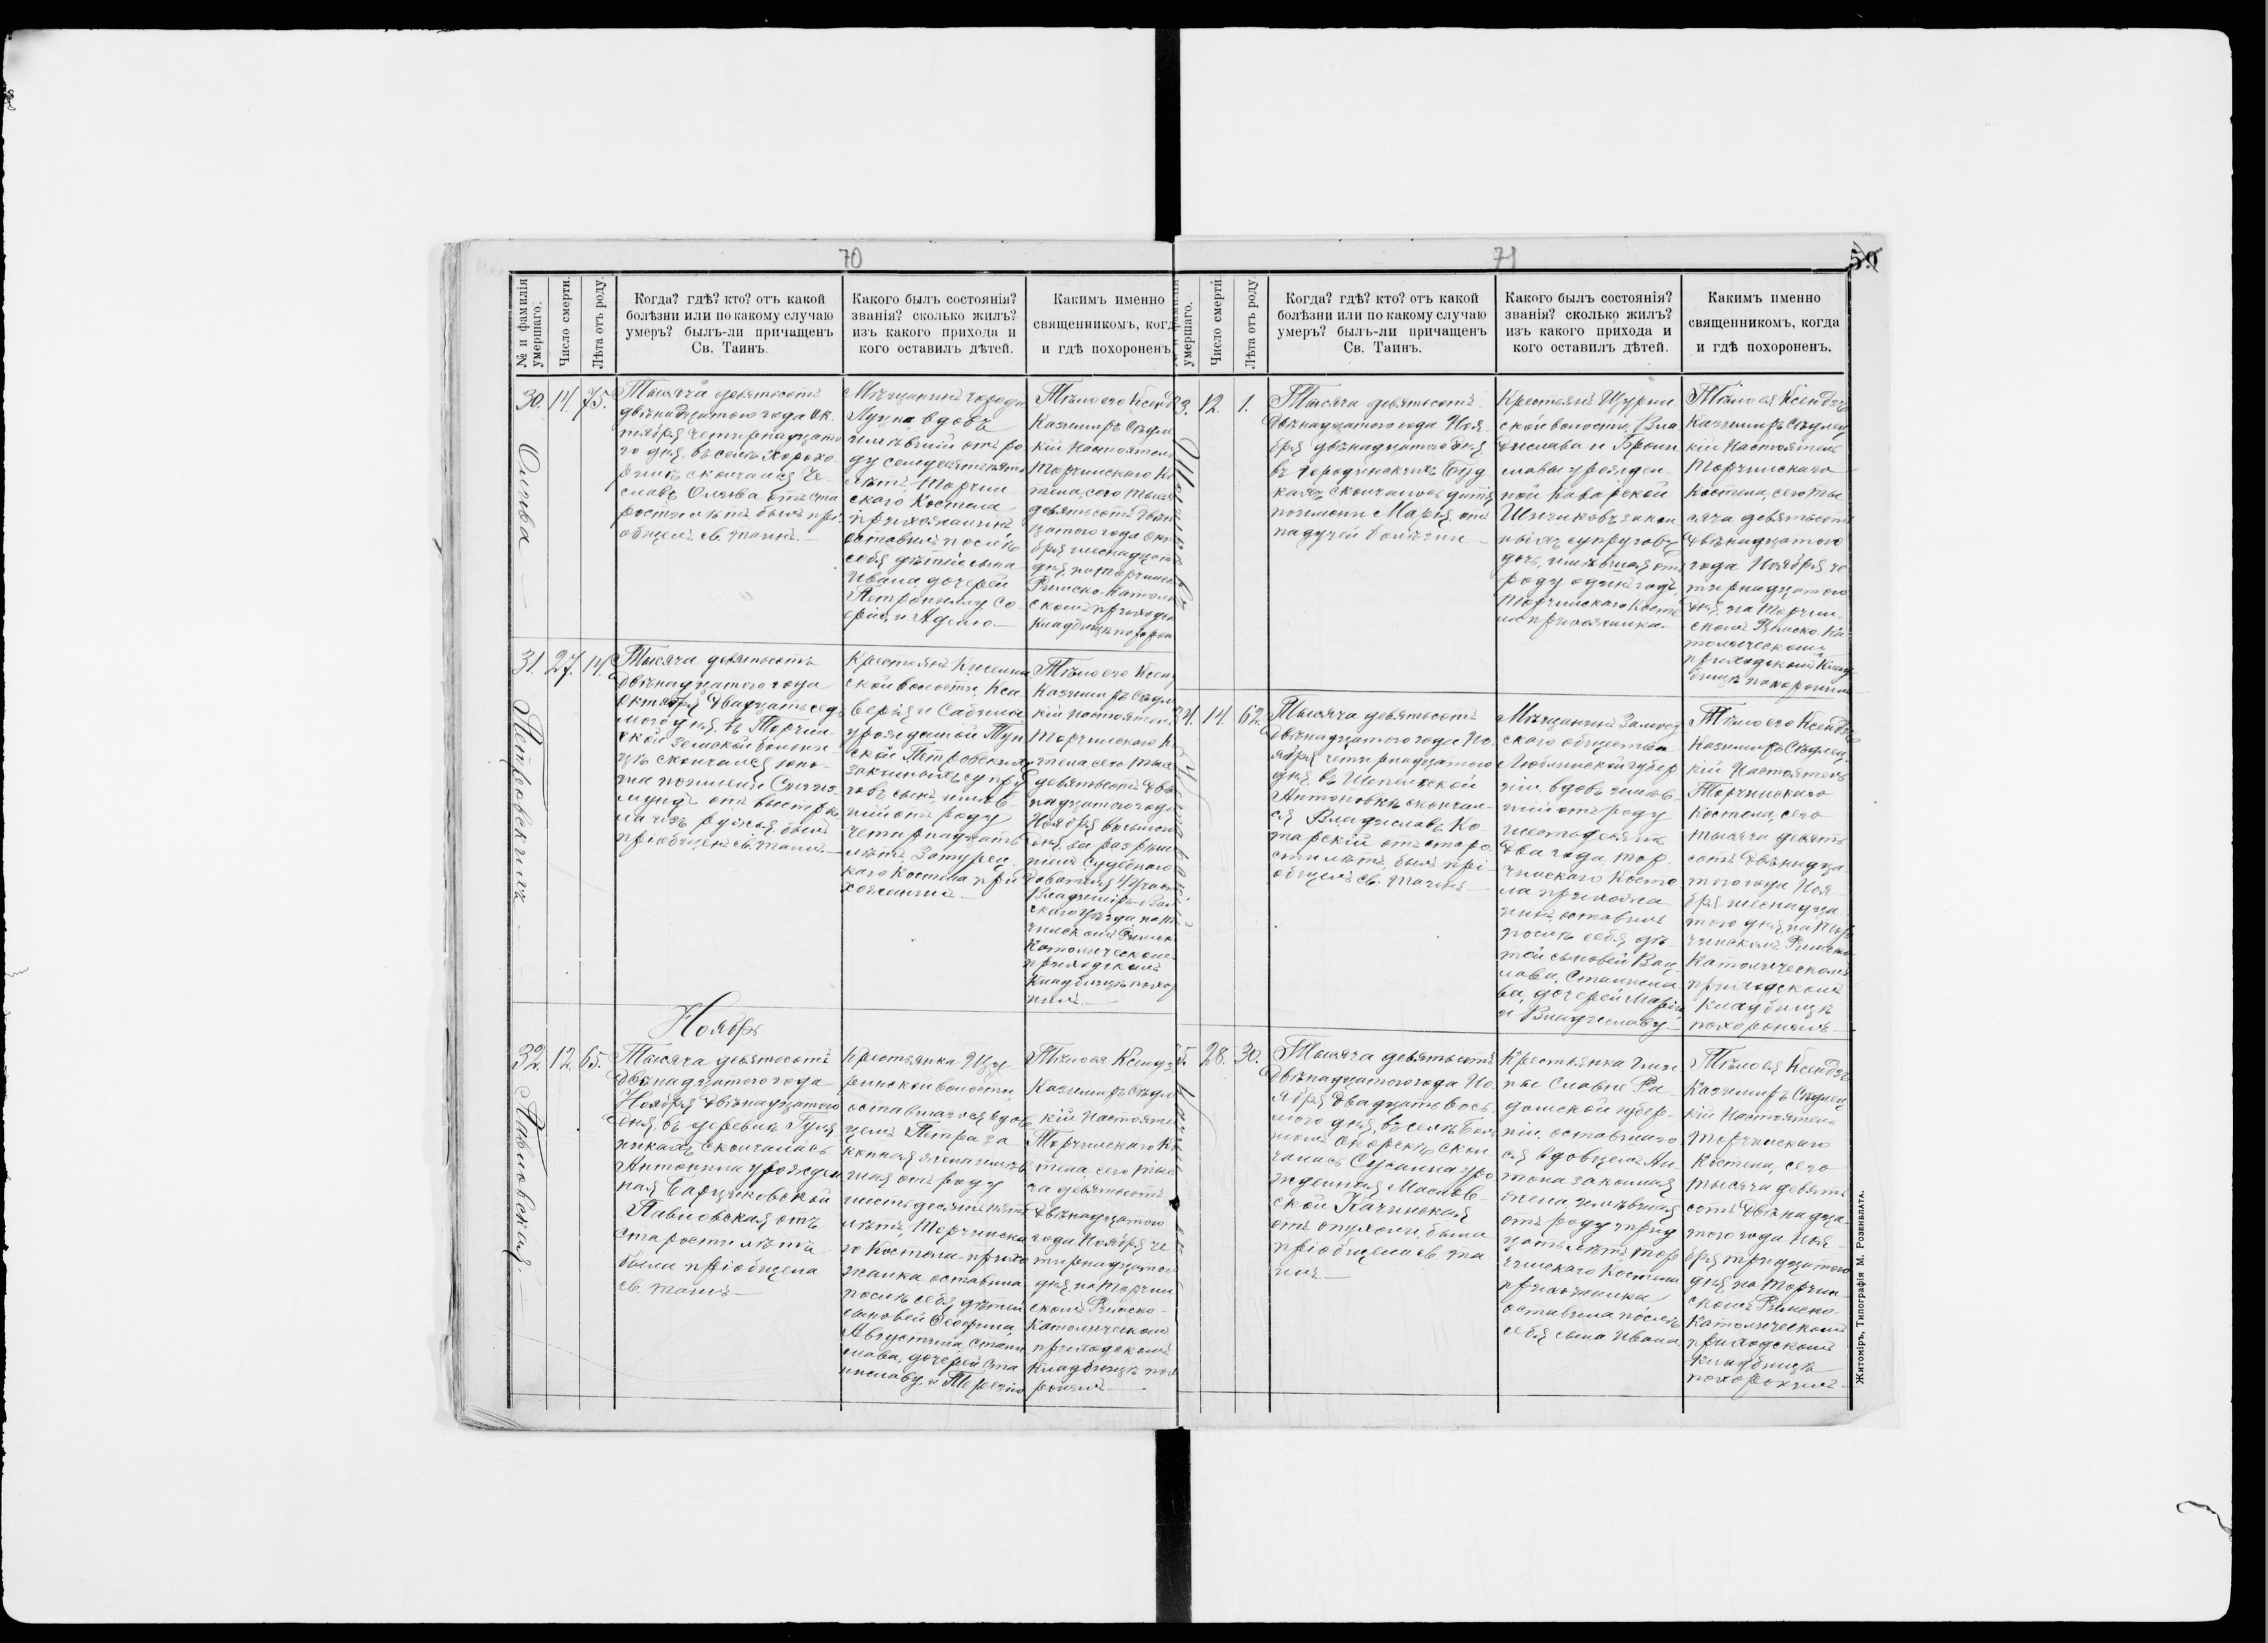 70
№ и фамилія умершаго.
Число смерти.
Лѣта отъ роду.
Когда? гдѣ? кто? отъ какой
болѣзни или по какому случаю
умеръ? былъ-ли причащенъ
Св. Таинъ.
Какого былъ состоянія?
званія? сколько жилъ?
изъ какого прихода и
кого оставилъ дѣтей.
Какимъ именно
священникомъ, когд
и гдѣ похороненъ
30.
Олива
14.
75.
Тысяча девятьсотъ
двѣнадцатого года Ок
тября четырнадцато
го дня, въ селѣ Хорохо
ринѣ скончался Че
славъ Олива отъ ста
рости лѣтъ былъ прі
общенъ св. таинъ.—
Мѣщанинъ города
Луцка вдовъ
имѣвшій отъ ро
ду семдесятъ пять
лѣтъ, Торчин
скаго Костела
прихожанинъ
оставилъ послѣ
себя дѣтей сына
Ивана, дочерей
Петронелу, Со
фію и Аделю.—
Тѣло его Ксенд
Казимиръ
кій Настоятель
Торчинскаго Ко
стела, сего тыся
девятьсотъ двѣн
цатого года Октя
бря шеснадцат
дня на Торчинс
Римско-Католи
скомъ приходск
Кладбищѣ похорон
31.
Петровскихъ
27.
14.
Тысяча девятьсотъ
двѣнадцатого года
Октября двадцать сед
мого дня, въ Торчин
ской Земской больни
цѣ скончался юно
ша по имени Сигиз
мундъ отъ выстрѣ
ла изъ ружья, былъ
пріобщенъ св. таинъ.—
Крестьянъ Киселин
ской волости, Кса
верія и Сабины
урожденной Тун
ской Петровскихъ
законныхъ супру
говъ сынъ, имѣв
шій отъ роду
четырнадцать
лѣтъ, Затурец
каго Костела при
хожанинъ.—
Тѣло его Ксен
Казимиръ
кій Настоятель
Торчинскаго К
стела, сего тыся
девятьсотъ двѣ
надцатого года
Ноября
дня, за разрѣше
ніемъ Судебнаго
Владимиръ-Вол
скаго уѣзда на Т
чинскомъ Римск
Католическомъ
приходскомъ
Кладбищѣ похор
нилъ.—
Ноябрь
32.
Павловская.
12.
65.
Тысяча девятьсотъ
двѣнадцатого года
Ноября двѣнадцатого
дня, въ деревнѣ
скончалась
Антонина урожден
ная
Павловская отъ
старости лѣтъ
была пріобщена
св. таинъ.—
Крестьянка Щу
ринской волости,
оставшагося вдов
цемъ Петра за
конная жена имѣв
шая отъ роду
шестьдесятъ пять
лѣтъ, Торчинска
го Костела прихо
жанка оставила
послѣ себя дѣтей
сыновей
Августина, Стани
слава, дочерей Ста
ниславу и Терезію
Тѣло ея Ксендз
Казимиръ
кій Настояте
Торчинскаго К
стела, сего тыс
ча девятьсотъ
двѣнадцатого
года Ноября че
тырнадцатого
дня на Торчин
скомъ Римско-
Католическомъ
приходскомъ
Кладбищѣ пох
ронилъ.—
71
50
умершаго.
Число смерти.
Лѣта отъ роду.
Когда? гдѣ? кто? отъ какой
болѣзни или по какому случаю
умеръ? былъ-ли причащенъ
Св. Таинъ.
Какого былъ состоянія?
званія? сколько жилъ?
изъ какого прихода и
кого оставилъ дѣтей.
Какимъ именно
священникомъ, когда
и гдѣ похороненъ.
3.
12.
1.
Тысяча девятьсотъ
двѣнадцатого года Ноя
бря двѣнадцатого дня
въ Городинскихъ Буд
кахъ скончалось дитя
по имени Марія, отъ
падучей болѣзни
Крестьянъ Щурин
ской волости, Вла
дислава и Брони
славы урожден
ной
закон
ныхъ супруговъ
дочь, имѣвшая отъ
роду одинъ годъ,
Торчинскаго Косте
ла прихожанка.—
Тѣло ея Ксендзъ
Казимиръ
кій Настоятель
Торчинскаго
Костела, сего ты
сяча девятьсотъ
двѣнадцатого
года Ноября че
тырнадцатого
дня, на Торчин
скомъ Римско-Ка
толическомъ
приходскомъ Клад
бищѣ похоронилъ
4.
14.
62.
Тысяча девятьсотъ
двѣнадцатого года Но
ября четырнадцатого
дня, въ Шепельской
Антоновкѣ скончал
ся Владиславъ Ко
тарскій отъ старо
сти лѣтъ, былъ прі
общенъ св. таинъ.—
Мѣщанинъ
скаго общества
Люблинской губер
ніи, вдовъ имѣв
шій отъ роду
шестьдесятъ
два года, Тор
чинскаго Косте
ла прихожа
нинъ, оставилъ
послѣ себя дѣ
тей сыновей Вац
лава, Станисла
ва, дочерей Марію
и Владиславу.—
Тѣло его Ксендзъ
Казимиръ
кій Настоятель
Торчинскаго
Костела, сего
тысяча девять
сотъ двѣнадца
того года Ноя
бря шеснадца
того дня, на Тор
чинскомъ Римско
Католическомъ
приходскомъ
Кладбищѣ
похоронилъ.—
5.
28.
30.
Тысяча девятьсотъ
двѣнадцатого года Но
ября двадцать вось
мого дня, въ селѣ Боль
шомъ скон
чалась Сусанна уро
жденная Маслов
ской Качинская
отъ опухоли, была
пріобщена св. та
инъ.—
Крестьянка гми
ны Ра
домской губер
ніи, оставшаго
ся вдовцемъ Ан
тона законная
жена, имѣвшая
отъ роду трид
цать лѣтъ, Тор
чинскаго Костела
прихожанка
оставила послѣ
себя сына Ивана.
Тѣло ея Ксендзъ
Казимиръ
кій Настоятель
Торчинскаго
Костела, сего
тысяча девять
сотъ двѣнадца
того года Ноя
бря тридцатого
дня, на Торчин
скомъ Римско-
Католическомъ
приходскомъ
Кладбищѣ
похоронилъ.—
Житоміръ, Типографія М. Розенблата.